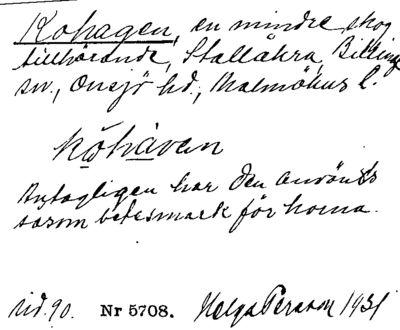 Kohagen, en mindre skog
tillhörande, Stallåkra, Billinge
sn., Onsjö hd., Malmöhus l.
köhaven
Antagligen har den använts
såsom betesmark för korna.
sid. 90. Nr 5708. Helga Persson 1931